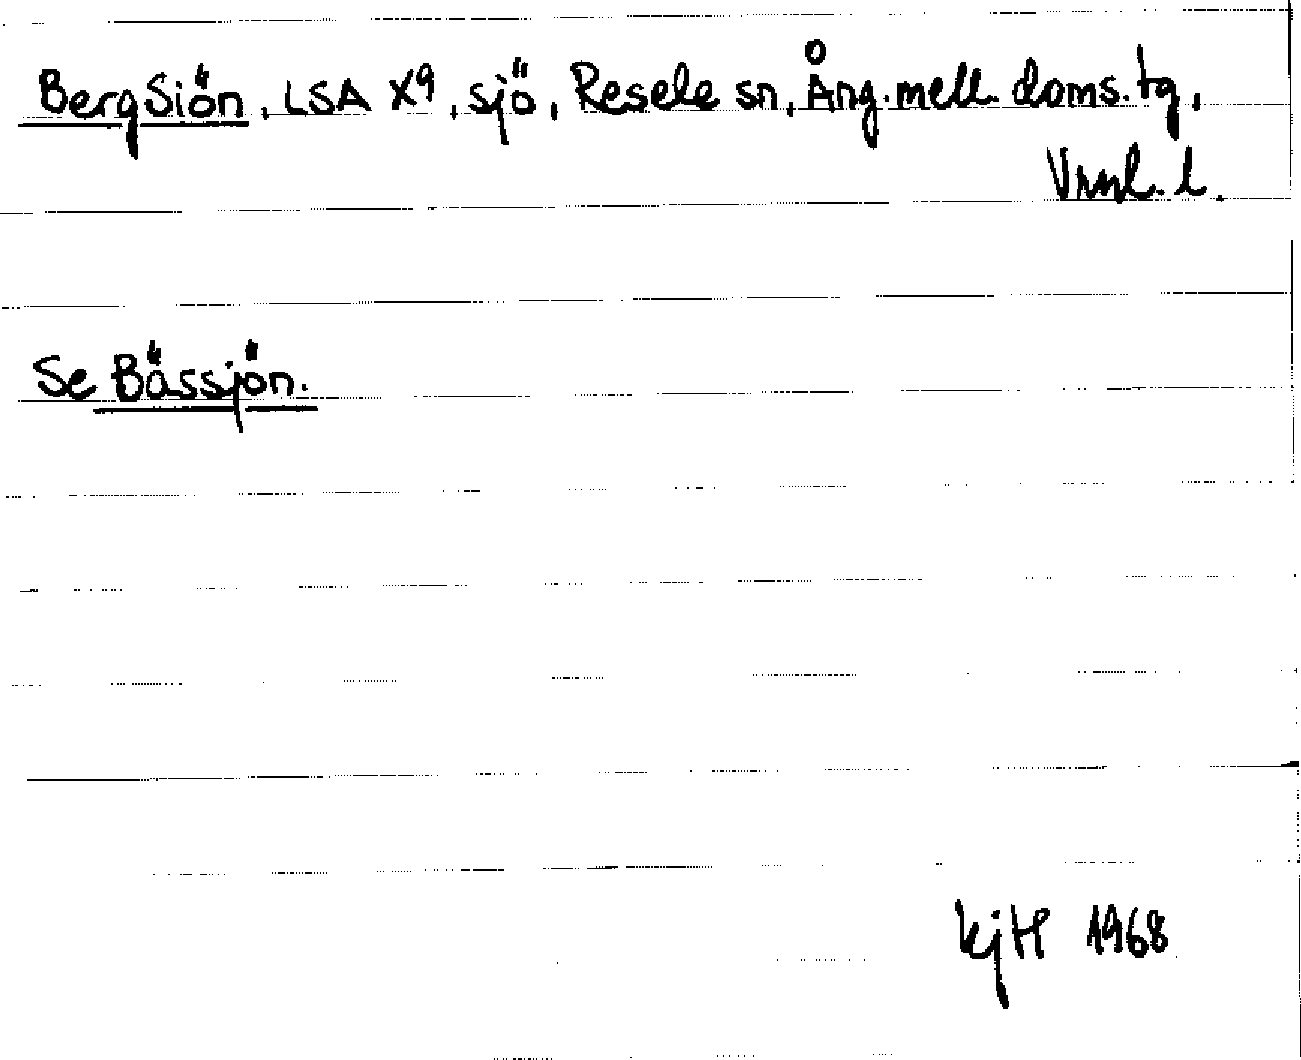 BergSiön, LSA X9, sjö, Resele sn, Ång. mell. doms. tg,
Vrnl. l.
Se Bässjön.
kjH 1968